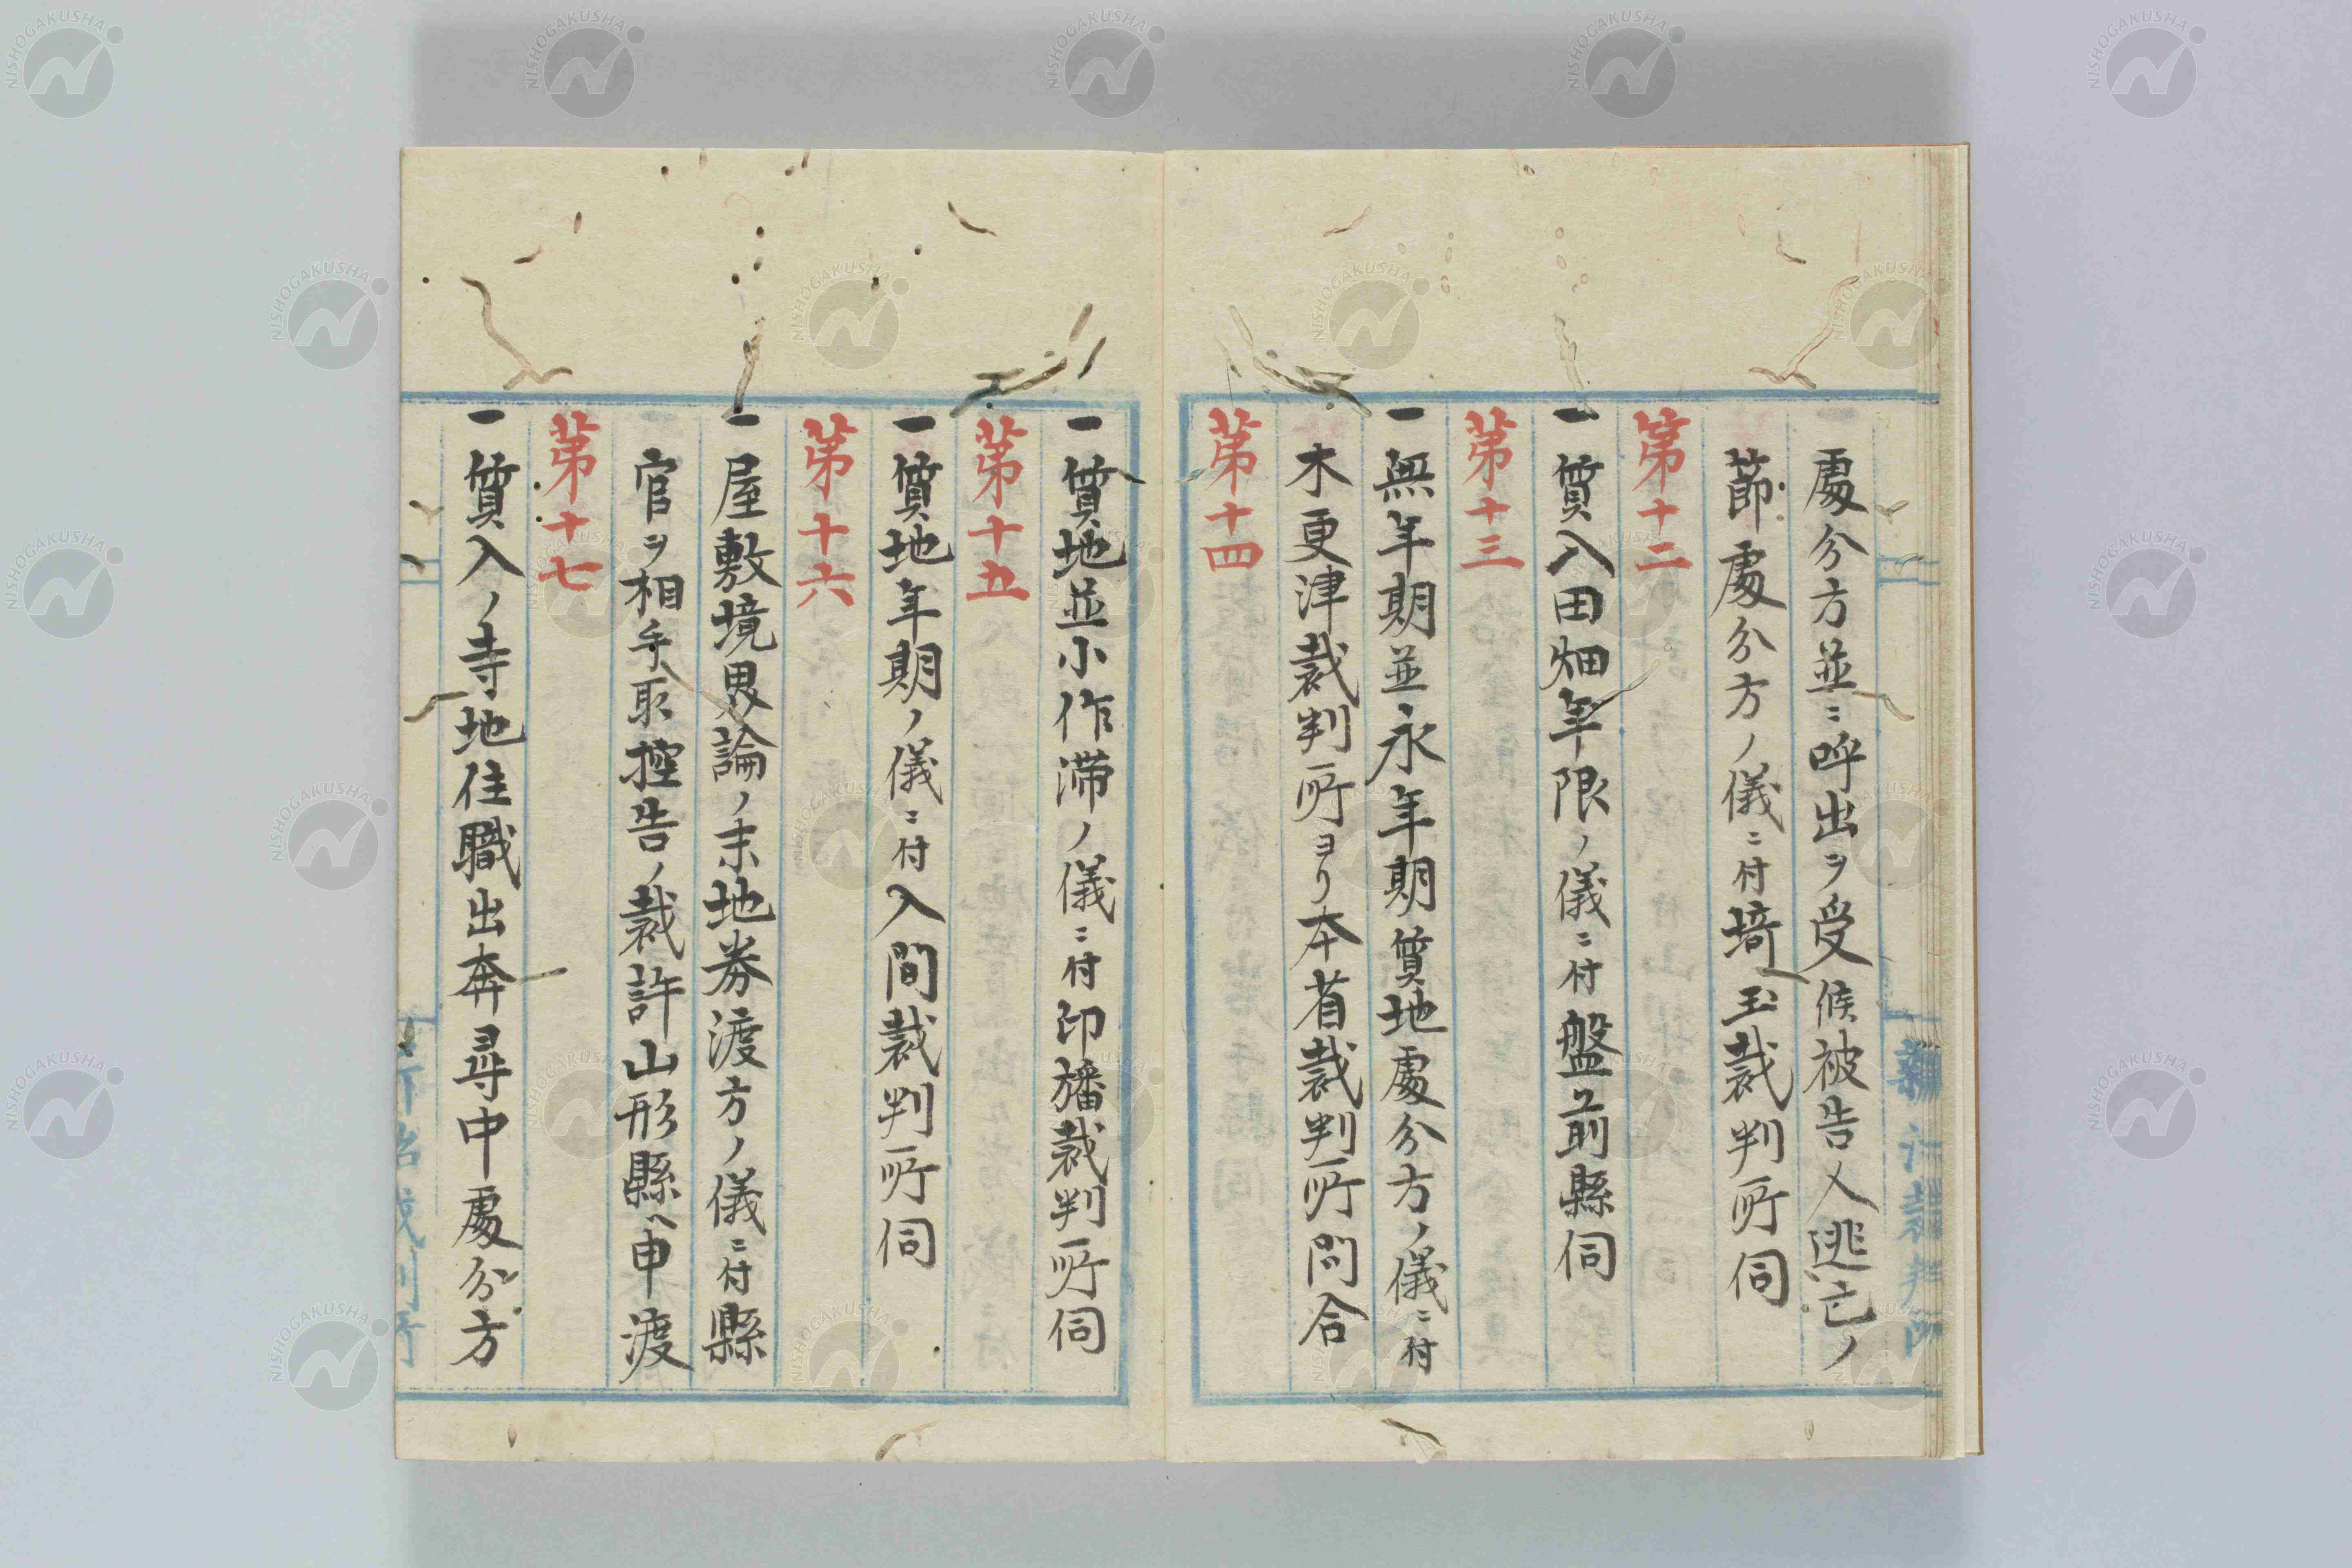 處分方並ニ呼出ヲ受候被告人逃亡ノ
節處分方ノ儀ニ付埼玉裁判所伺
第十二
一質入田畑年限ノ儀ニ付盤前縣伺
第十三
一無年期並永年期質地處分方ノ儀ニ付
木更津裁判所ヨリ本省裁判所問合
第十四
一質地並小作滞ノ儀ニ付印旛裁判所伺
第十五
一質地年期ノ儀ニ付入間裁判所伺
第十六
一屋敷境界論ノ末地券渡方ノ儀ニ付縣
官ヲ相手取控告ノ裁許山形縣ヘ申渡
第十七
一質入ノ寺地住職出奔尋中處分方
NISHOGAKUSHA